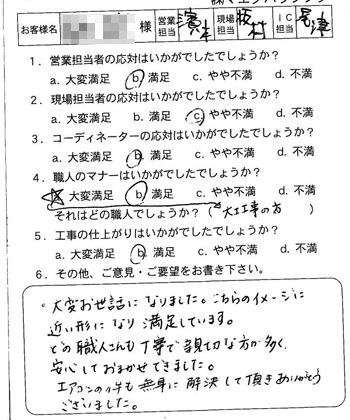 お客様名 様 営業担当 濱本 現場担当 坂村 IC担当
1．営業担当者の応対はいかがでしたでしょうか？
a. 大変満足 b. 満足 c. やや不満 d. 不満
2．現場担当者の応対はいかがでしたでしょうか？
a. 大変満足 b. 満足 c. やや不満 d. 不満
3．コーディネーターの応対はいかがでしたでしょうか？
a. 大変満足 b. 満足 c. やや不満 d. 不満
4．職人のマナーはいかがでしたでしょうか？
大変満足 b. 満足 c. やや不満 d. 不満
それはどの職人でしょうか？（大工工事の方）
5．工事の仕上がりはいかがでしたでしょうか？
a. 大変満足 b. 満足 c. やや不満 d. 不満
6．その他、ご意見・ご要望をお書き下さい。
。大変お世話になりました。こちらのイメージに
近い形になり満足しています。
どの職人さんも丁寧で親切な方が多く、
安心しておまかせできました。
エアコンの件も無事に解決して頂きありがとう
ございました。